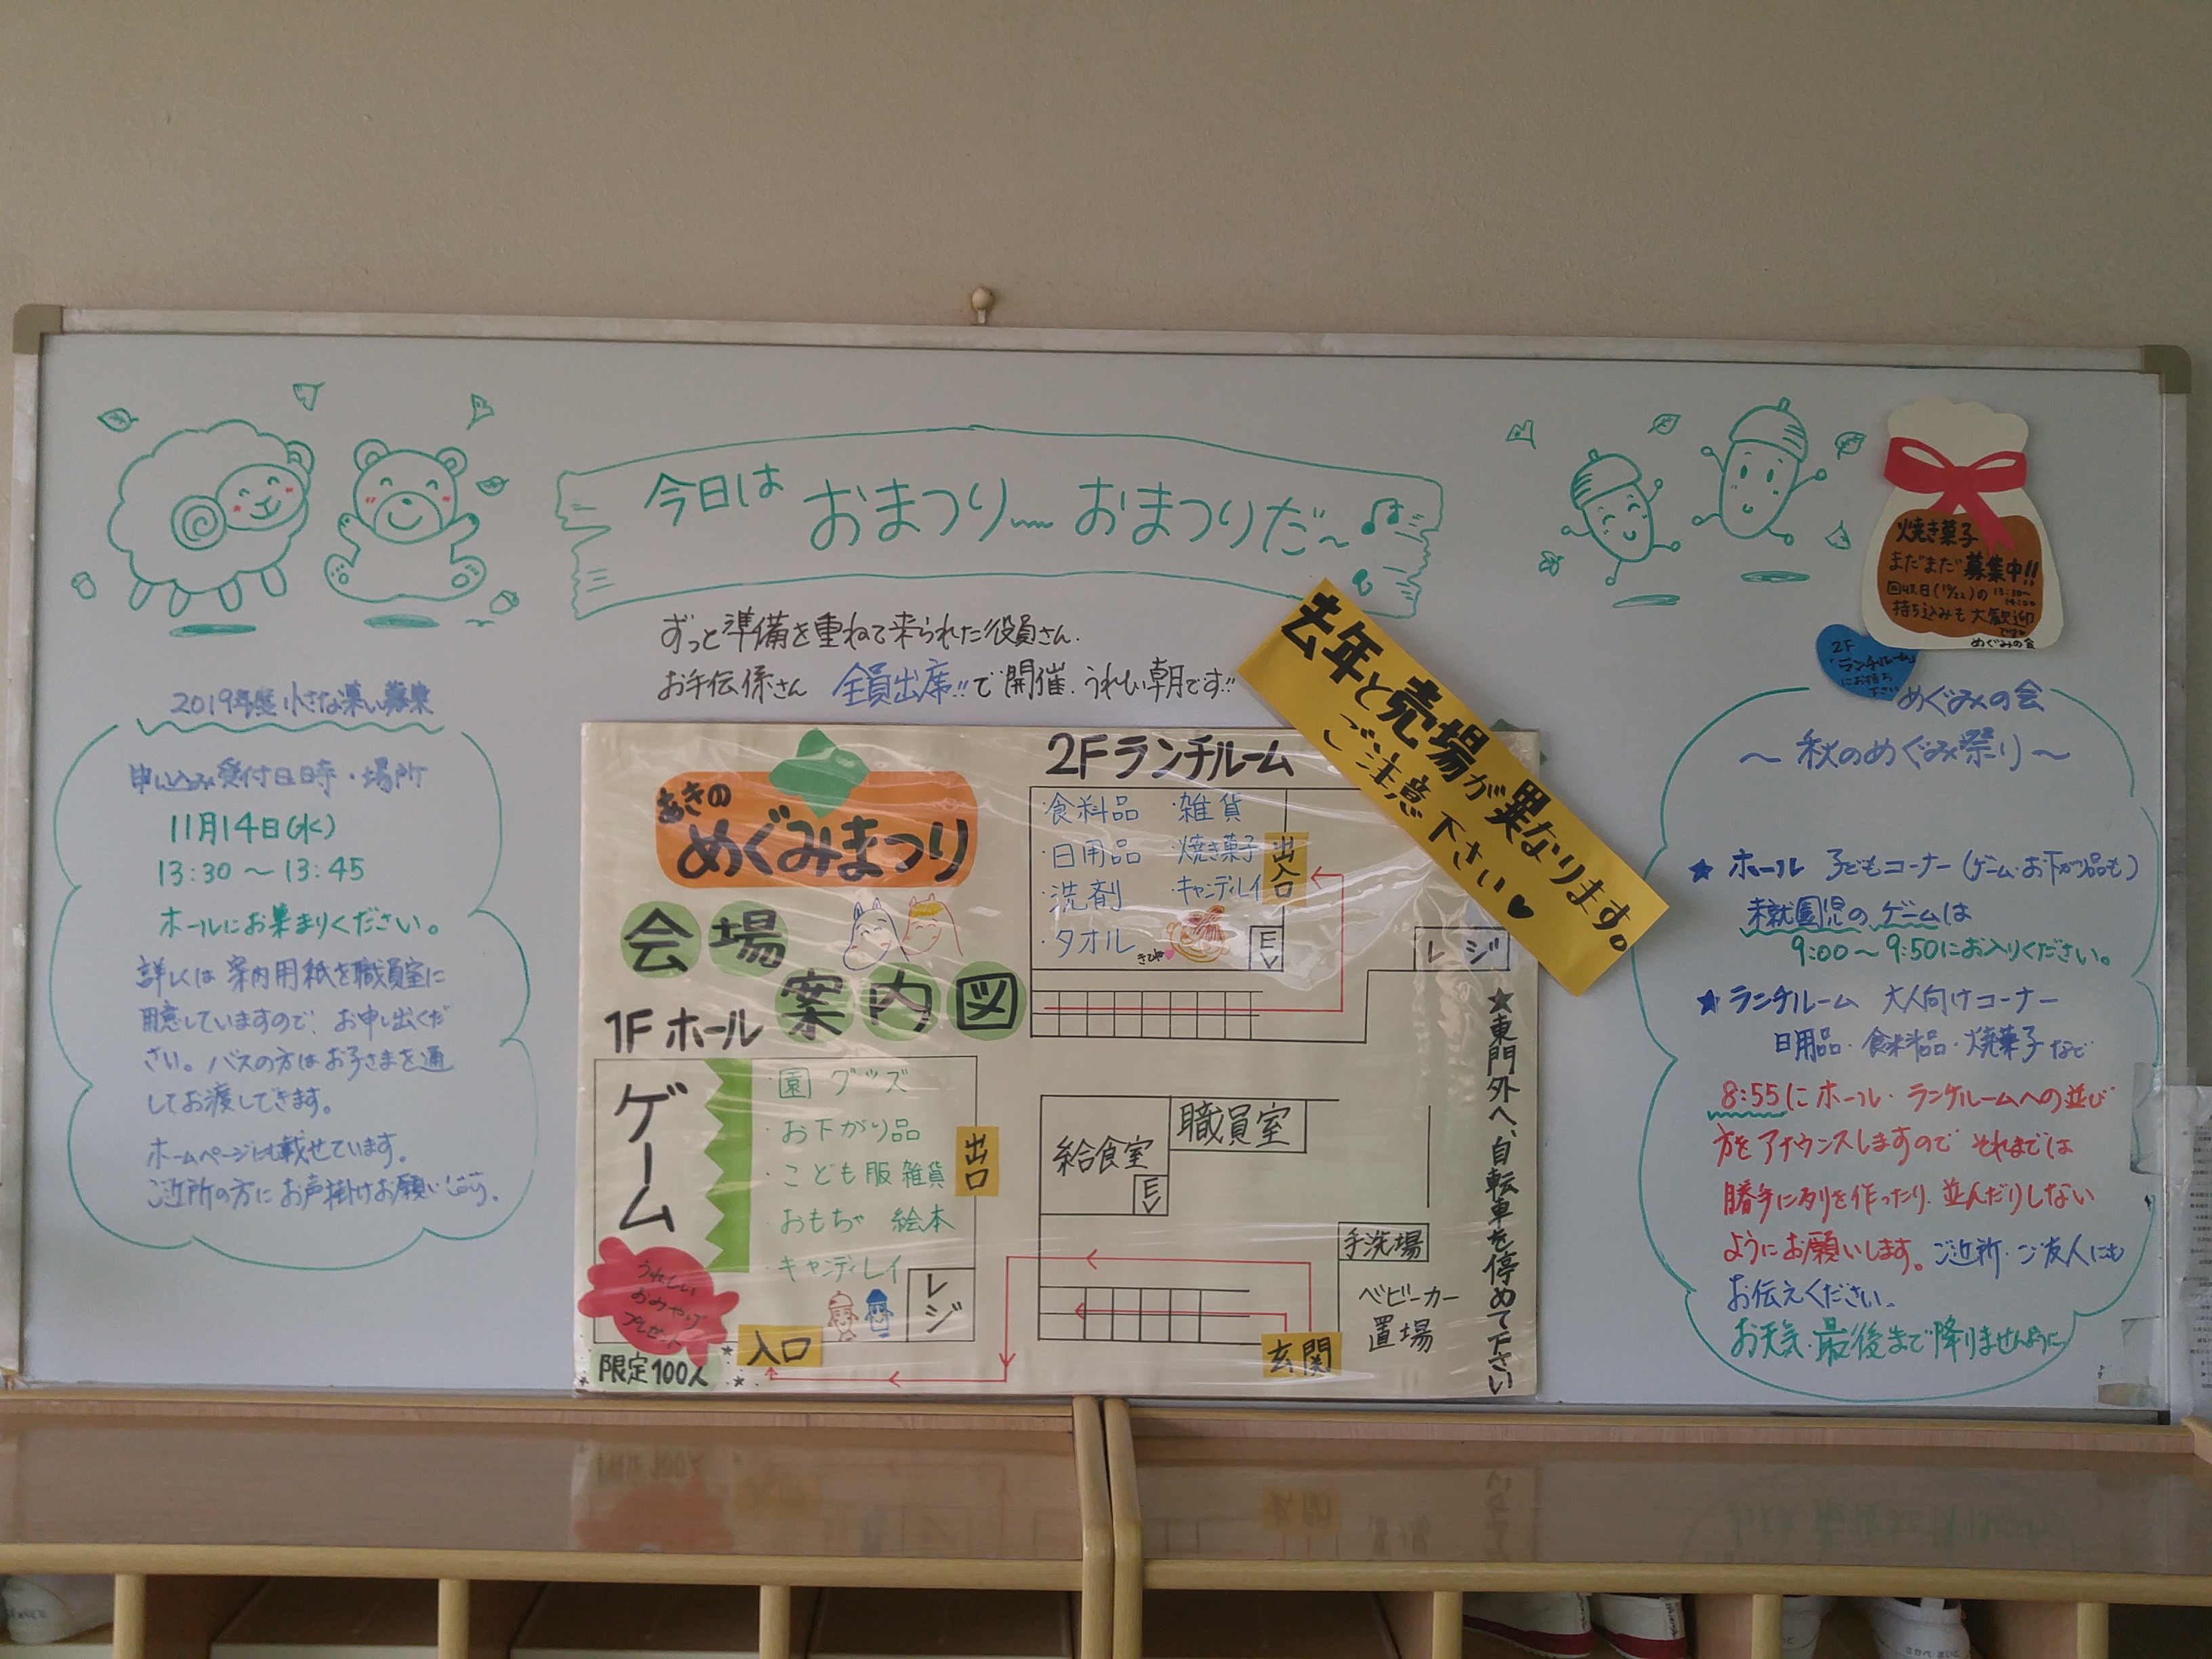 今日は おまつり〜 おまつりだ〜♪
ずっと準備を重ねて来られた役員さん.
お手伝係さん 全員出席!!で開催.うれしい朝です!!
2019年度 小さな集い募集
申し込み受付日時・場所
11月14日(水)
13:30〜13:45
ホールにお集まりください。
詳しくは案内用紙を職員室に
用意していますので、お申し出くだ
さい。バスの方はお子さまを通
してお渡しできます。
ホームページにも載せています。
ご近所の方にお声掛けお願いします。
あきの
めぐみまつり
会場
案内図
1Fホール
ゲーム
うれしい
おみやげ
プレゼント
限定100人
・園グッズ
・お下がり品
・こども服 雑貨
・おもちゃ 絵本
・キャンディレイ
出口
レジ
入口
2Fランチルーム
・食料品 ・雑貨
・日用品 ・焼き菓子
・洗剤 ・キャンディレイ
・タオル
出入口
E
レジ
給食室
職員室
E
手洗場
ベビーカー
置場
玄関
★東門外へ、自転車を停めて下さい
去年と売場が異なります。
ご注意下さい♥
焼き菓子
まだまだ募集中!!
持ち込みも大歓迎
めぐみの会
2F
「ランチルーム」
にお持ち
下さい
めぐみの会
〜 秋のめぐみ祭り 〜
★ ホール 子どもコーナー(ゲーム・お下がり品も)
未就園児のゲームは
9:00〜9:50にお入りください。
★ ランチルーム 大人向けコーナー
日用品・食料品・焼菓子など
8:55にホール・ランチルームへの並び
方をアナウンスしますので それまでは
勝手に列を作ったり、並んだりしない
ようにお願いします。ご近所・ご友人にも
お伝えください。
お天気・最後まで降りませんように